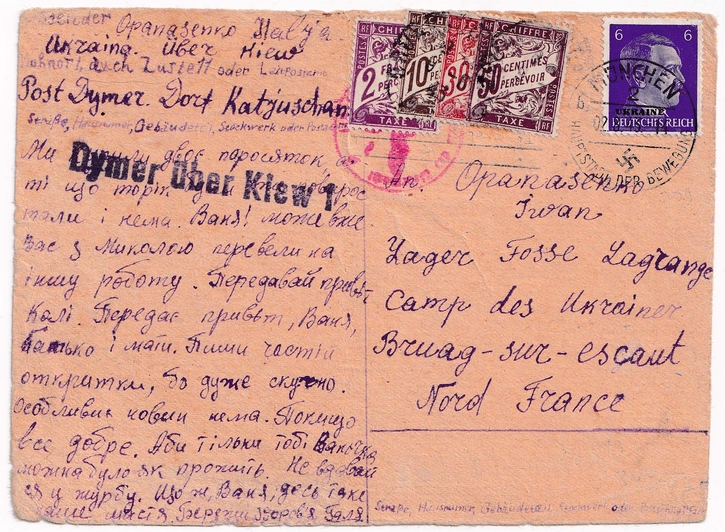 Absender
Opanasenko Halja
Ukraina. Über Kiew
Wohnort, auch Zustell oder Leitpostamt
Post Dymer. Dorf Katjuschan
Straße, Hausnummer, Gebäudeteil, Stockwerk oder
Dymer über Kiew 1
Ми купили двоє поросяток
ті що
тали і нема. Ваня! може вже
Вас з Миколою перевели на
іншу роботу. Передавай привѣт
Колі. Передає привѣт, Ваня,
батько і мати. Пиши частій
открытки, бо дуже скучно.
Особливих новин нема. Покищо
все добре. Аби тільки тобі Ваничка
можна було як прожить. Не вдавай
ся у журбу. Що ж, Ваня, десь таке
наше щастя. Бережи здоровя Галя
CHIFFRE
2 FRANCS
A PERCEVOIR
TAXE
POSTES
RF
10
RF
30
RF
CHIFFRE
50 CENTIMES
A PERCEVOIR
TAXE
RF
6 6
UKRAINE
DEUTSCHES REICH
MÜNCHEN
2
HAUPTSTADT DER BEWEGUNG
An
Opanasenko
Iwan
Lager Fosse Lagrange
Camp des Ukrainer
Bruag-sur-escaut
Nord France
Straße, Hausnummer, Gebäudeteil, Stockwerk oder